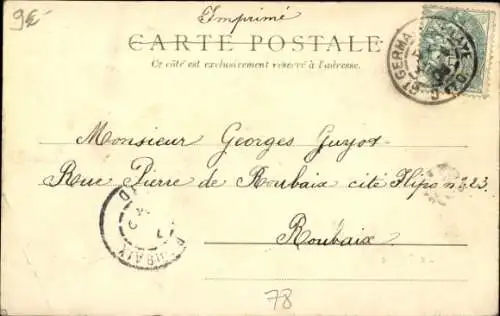 9€
Imprimé
CARTE POSTALE
Ce côté est exclusivement réservé à l'adresse.
ST GERMAIN
Monsieur Georges Guyot
Rue Pierre de Roubaix cité Flipo n 223.
Roubaix
ROUBAIX
78